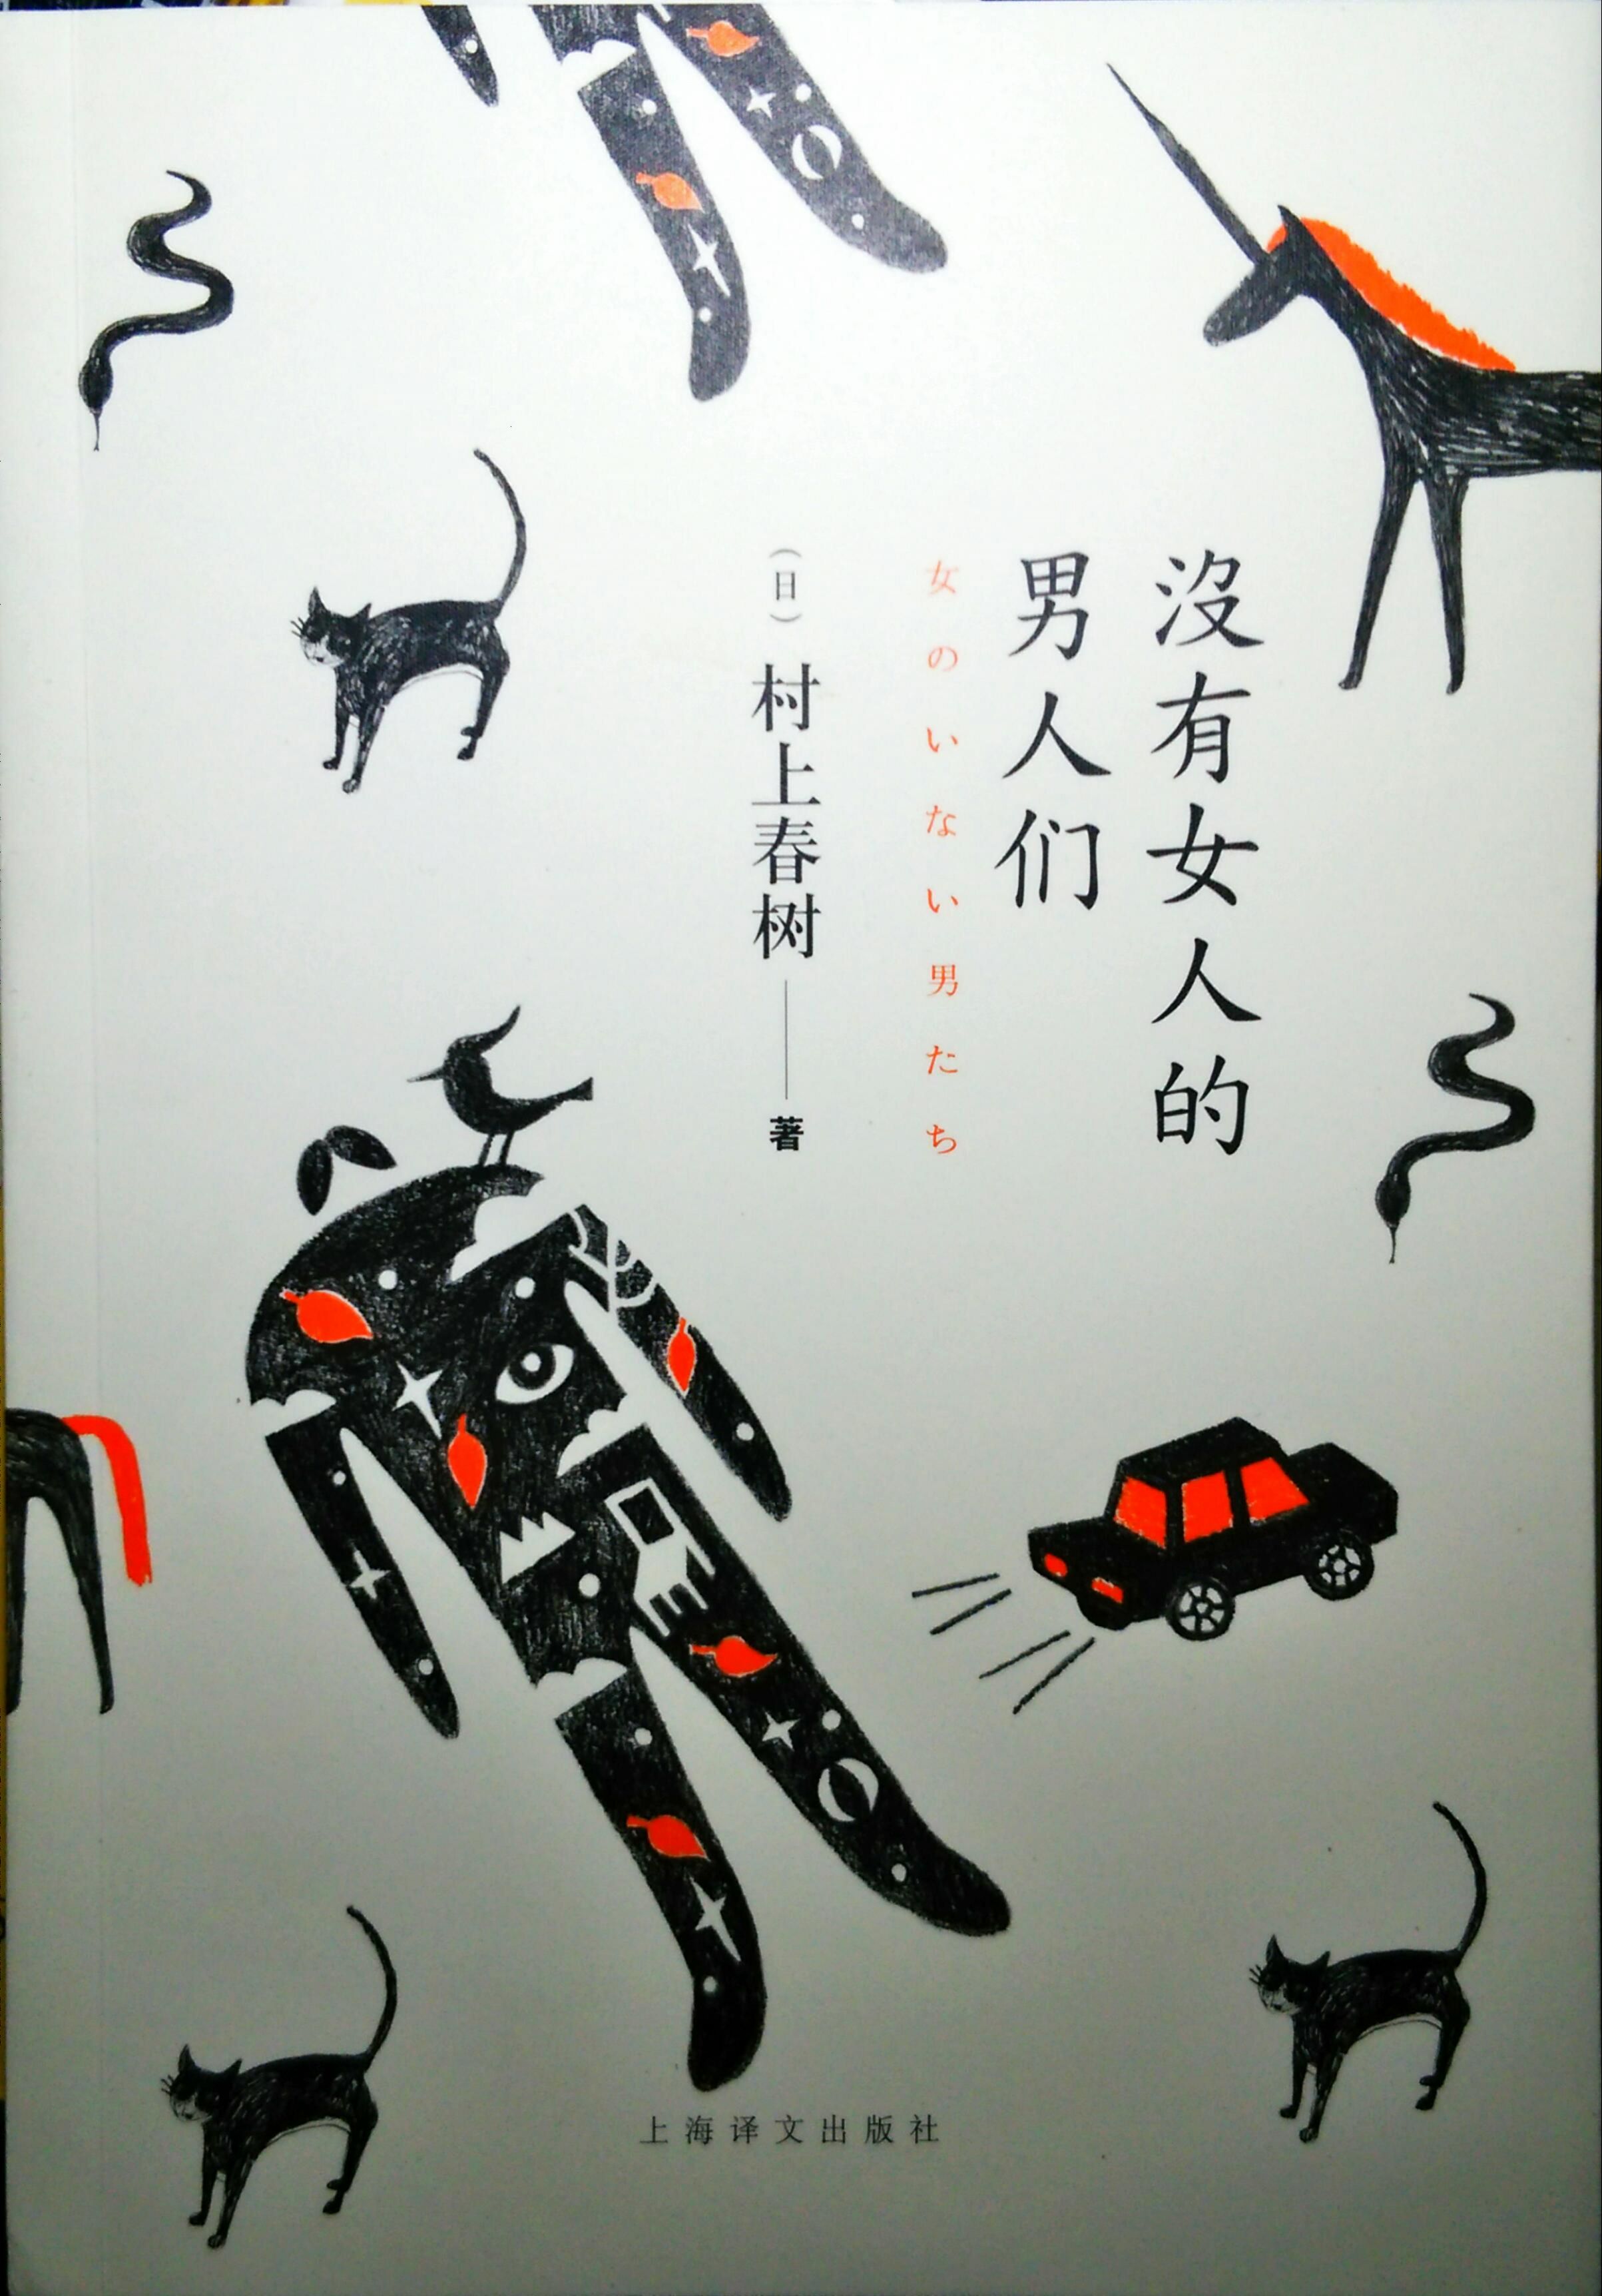 没有女人的
男人们
女のいない男たち
（日）村上春树——著
上海译文出版社